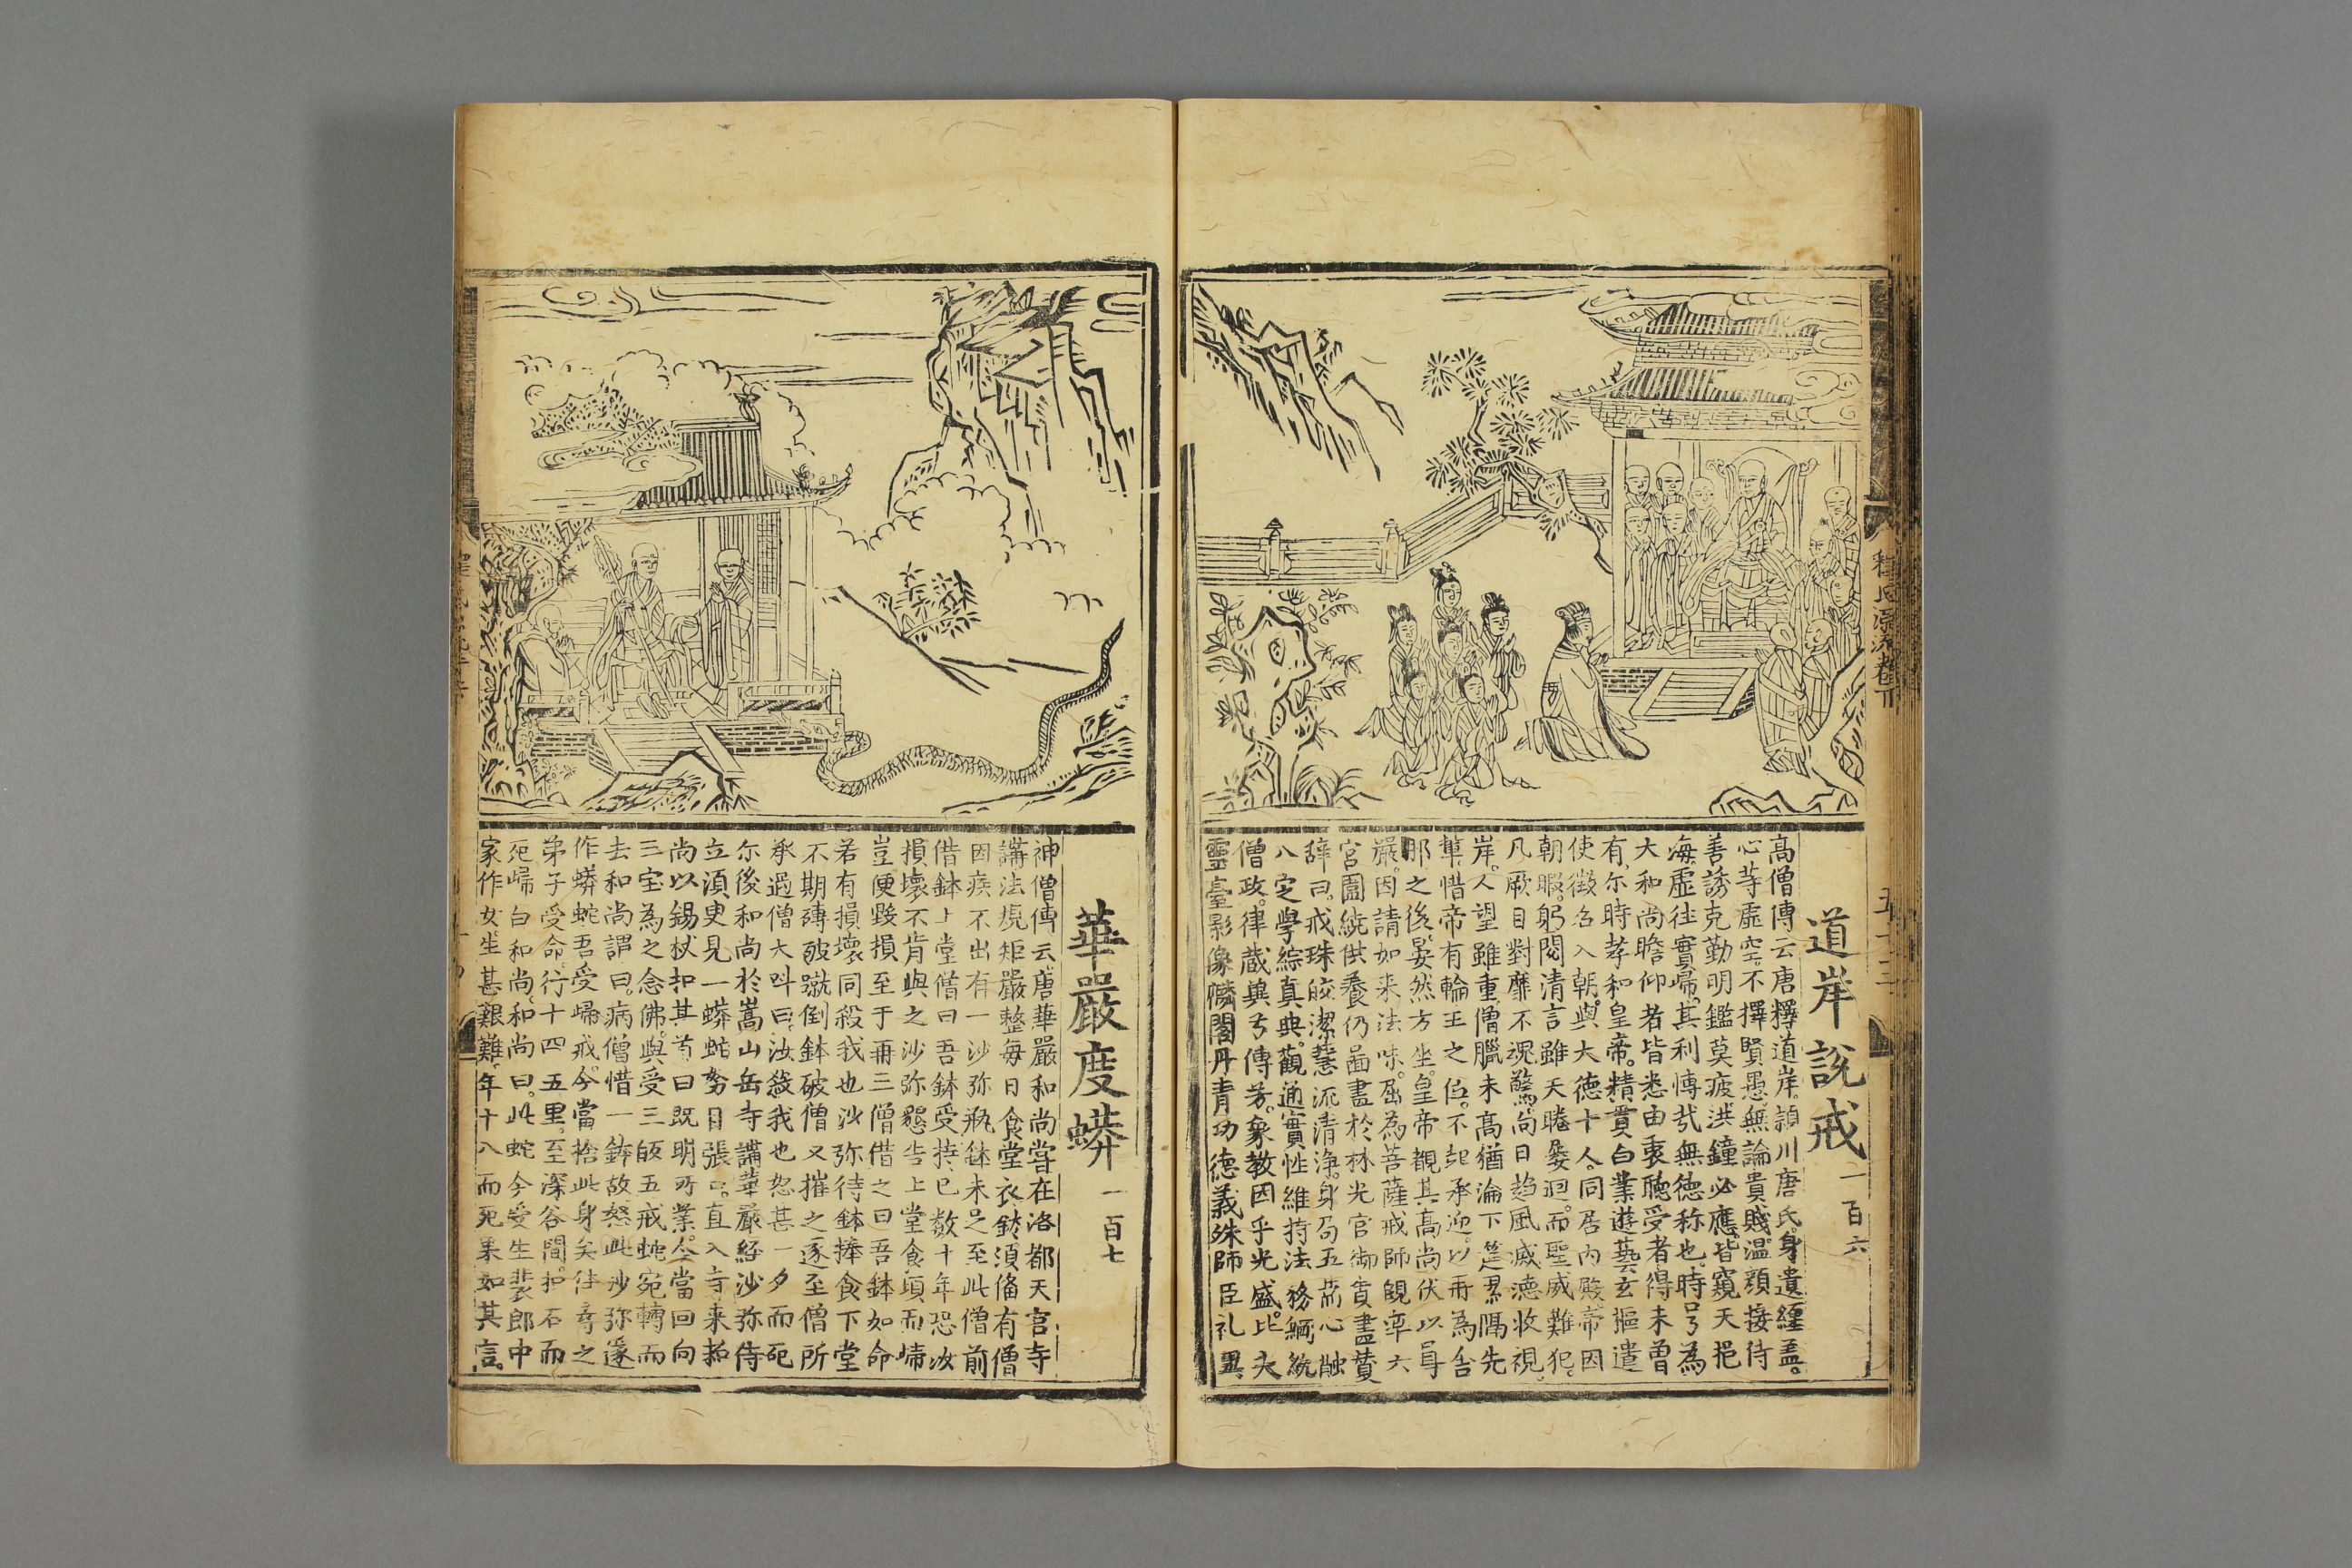 釋氏源流卷下
五十三
道岸說戒 一百六
高僧傳云唐釋道岸潁川唐氏身遺纏蓋
心等虛空不擇賢愚無論貴賤溫顏接待
善誘克勤明鑑莫疲洪鐘必應皆窺天挹
海虛往實歸其利愽哉無德稱也時号為
大和尚瞻仰者皆悉由衷聽受者得未曾
有尔時孝和皇帝精貫白業遊藝玄摳遣
使徵名入朝與大德十人同居內殿帝因
朝暇躬閱清言雖天睠屢迴而聖威難犯
凡厥目對靡不魂驚尚日趋風滅德收視
岸人望雖重僧臘未高猶淪下筵累隅先
軰惜帝有輪王之位不起承迎以再為舍
那之後晏然方坐皇帝觀其高尚伏以尋
嚴因請如来法味屈為菩薩戒師親率六
宮圍繞供養仍畵畫於林光宮御賁畫賛
辞曰戒珠皎潔慧流清淨身局五蔀心融
八定學綜真典觀通實性維持法務綱統
僧政律蔵冀兮傳芳象教因乎光盛比夫
靈臺影像麟閣丹青功德義殊師臣礼異
華嚴度蟒 一百七
神僧傳云唐華嚴和尚嘗在洛都天宮寺
講法規矩嚴整每日食堂衣鉢須俻有僧
因疾不出有一沙弥瓶鉢未足至此僧前
借鉢上堂僧曰吾鉢受持已数十年恐汝
損壞不肯與之沙弥懇告上堂食頃而歸
豈便毀損至于再三僧借之曰吾鉢如命
若有損壞同殺我也沙弥待鉢捧食下堂
不期磚破蹴倒鉢破僧又摧之遂至僧所
承過僧大叫曰汝殺我也怒甚一夕而死
尔後和尚於嵩山岳寺講華嚴經沙弥侍
立湏臾見一蟒蛇努目張口直入寺来和
尚以錫杖扣其首曰既明所業今當回向
三宝為之念佛與受三皈五戒蛇宛轉而
去和尚謂曰病僧惜一鉢故怒此沙弥遂
作蟒蛇吾受歸戒今當捨此身矣往尋之
弟子受命行十四五里至深谷間扣石而
死歸白和尚和尚曰此蛇今受生裴郎中
家作女生甚艱難年十八而死果如其言